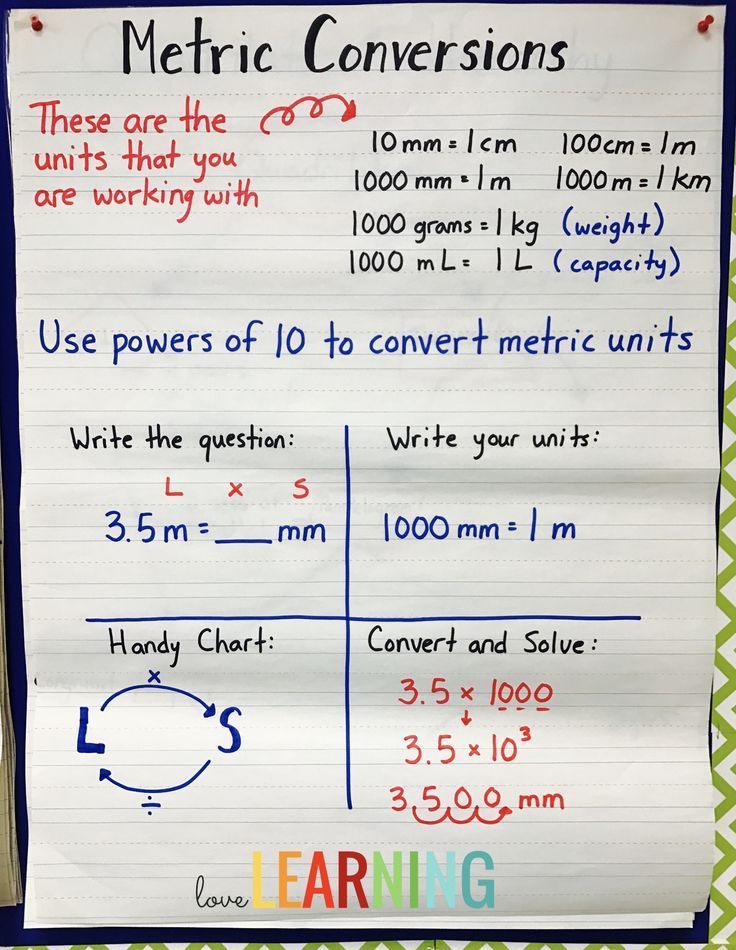 Metric Conversions
These are the
units that you
are working with
10 mm = 1 cm 100cm = 1m
1000 mm = 1 m 1000 m = 1 km
1000 grams = 1 kg (weight)
1000 mL = 1 L (capacity)
Use powers of 10 to convert metric units
Write the question:
L x S
3.5 m = ___ mm
Write your units:
1000 mm = 1 m
Handy Chart:
x
L S
÷
Convert and Solve:
3.5 x 1000
3.5 x 10³
3,5,0,0, mm
love LEARNING